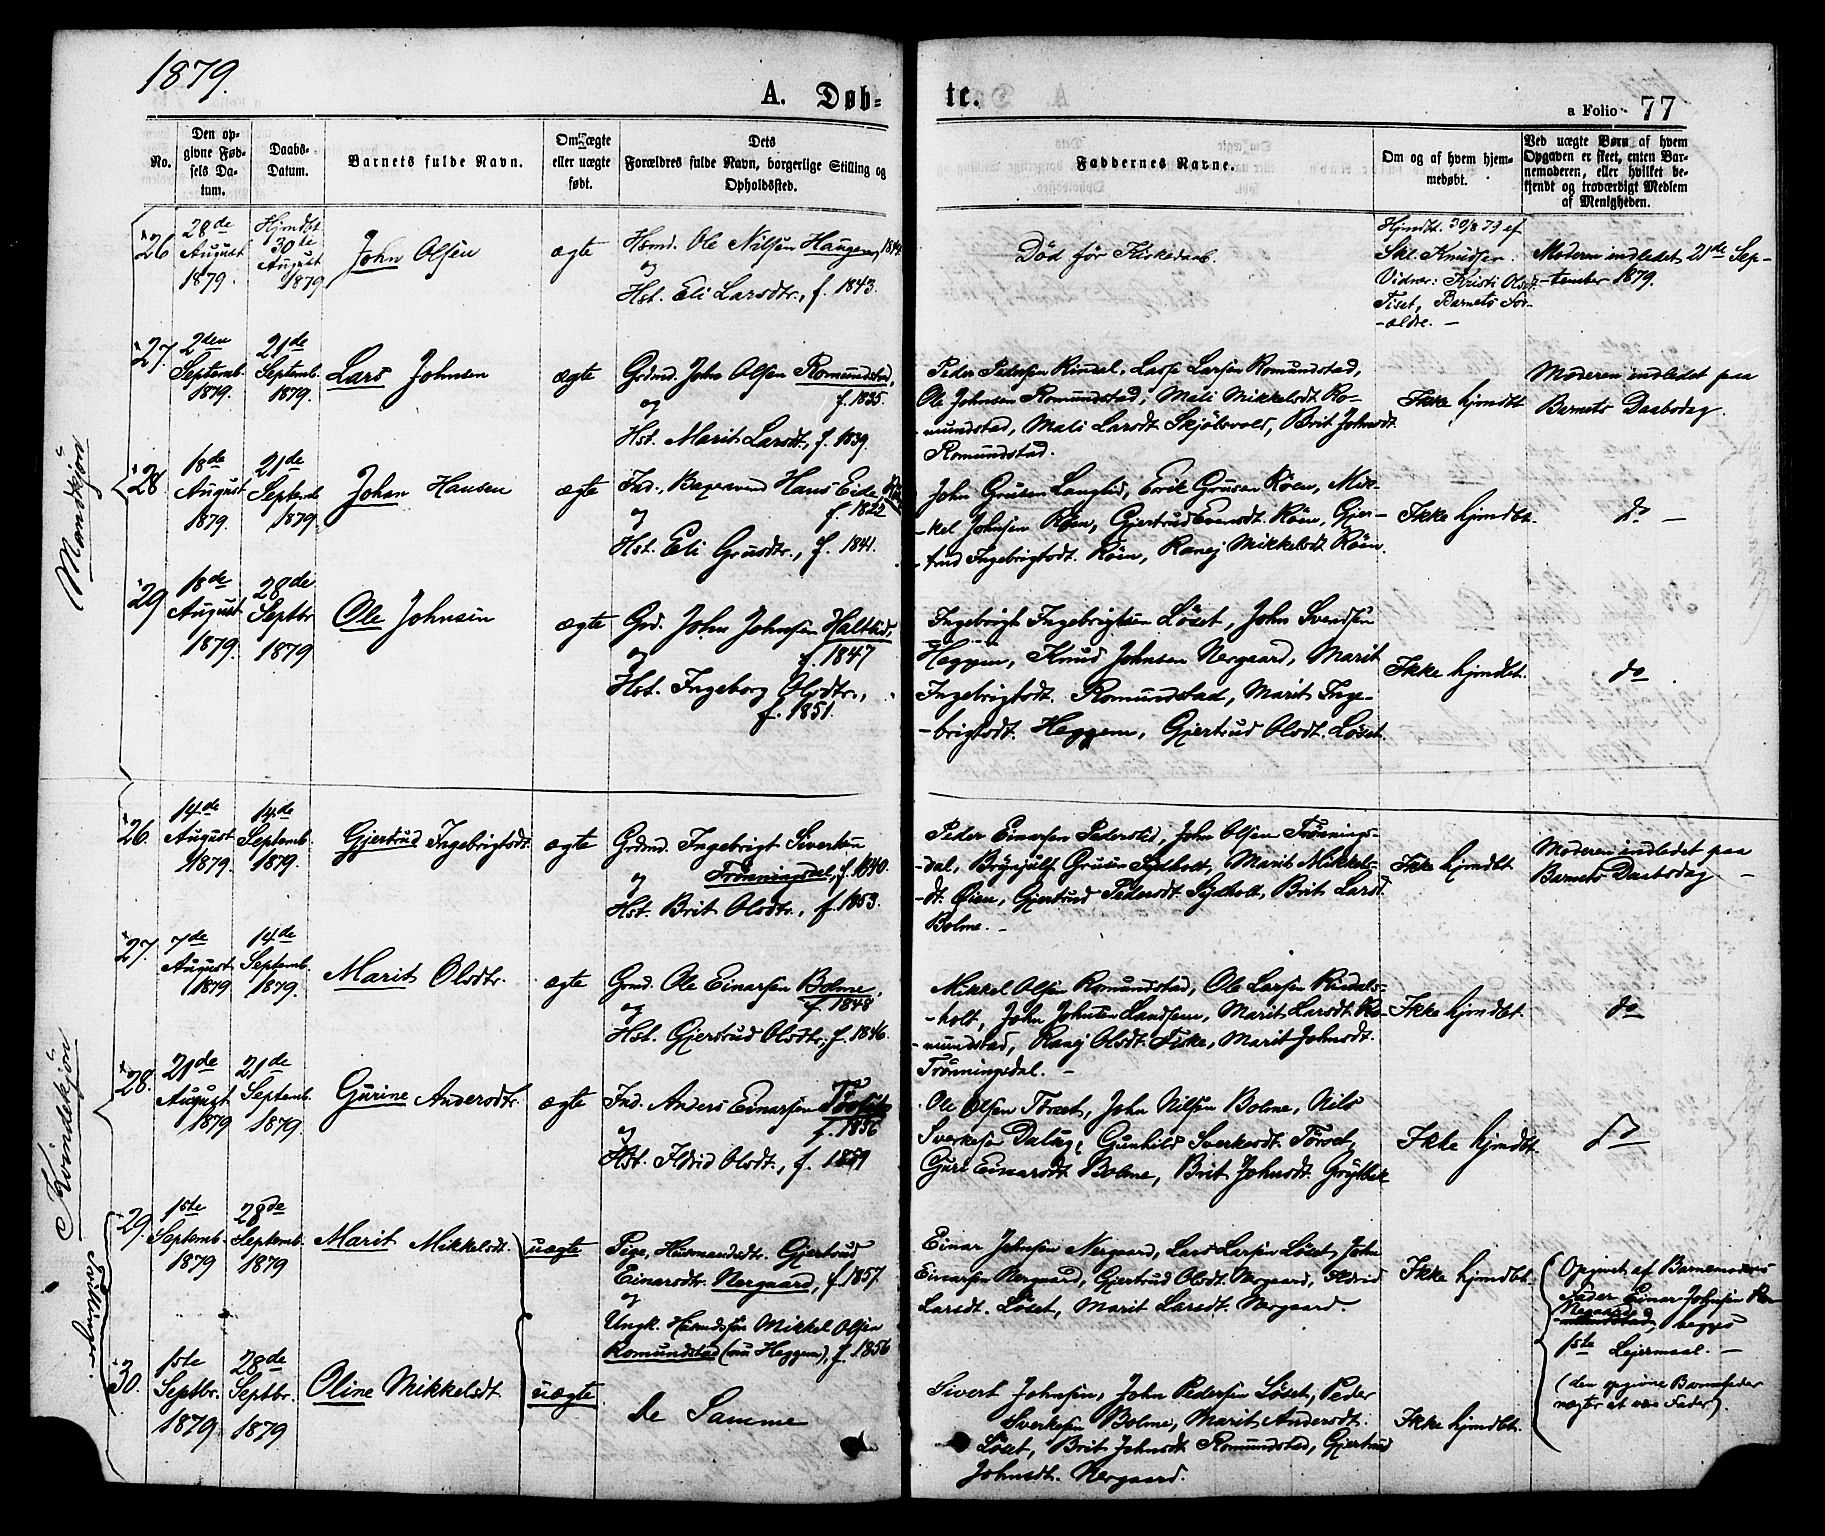 1879.
A. Døb-
te.
a Folio 77
No.
Den op-
givne Fød-
sels Da-
tum.
Daabs-
Datum.
Barnets fulde Navn.
Om ægte
eller uægte
født.
Dets
Forældres fulde Navn, borgerlige Stilling og
Opholdssted.
Faddernes Navne.
Om og af hvem hjem-
medøbt.
Ved uægte Børn af hvem
Opgaven er skeet, enten Bar-
nemoderen, eller hvilket be-
kjendt og troværdigt Medlem
af Menigheden.
Mandkjøn
26
28de
August
1879.
Hjmdbt
30te
August
1879
John Olsen
ægte
Hsmd. Ole Nilsen Haugen,
og
Hst. Eli Larsdtr., f. 1843.
Død før Kirkedaab.
Hjmdbt. 30/8 79 af
Skl. Knudsen.
Vidner: Kristi Olsdt.
Tiset, Barnets For-
-ældre. -
Moderen indledet 21de Sep-
-tember 1879.
27.
2den
Septemb.
1879.
21de
Septemb.
1879.
Lars Johnsen
ægte
Grdmd. John Olsen Romundstad,
f. 1835.
og
Hst. Marit Larsdt., f. 1839.
Peder Pedersen Rindal, Lars Larsen Romundstad,
Ole Johnsen Romundstad, Mali Mikkelsdt. Ro-
-mundstad, Mali Larsdt. Skjølsvold, Brit Johnsdt.
Romundstad.
Ikke hjmdbt
Moderen indledet paa
Barnets Daabsdag.
28.
18de
August
1879.
21de
Septemb.
1879.
Johan Hansen
ægte
Ind. Bagersvend Hans Eide,
og f. 1822
Hst. Eli Grusdtr., f. 1841.
John Grusen Langlid, Erik Grusen Røen, Mik-
-kel Johnsen Røen, Gjertrud Evensdt. Røen, Gjer-
-trud Ingebrigtsdt. Røen, Ranej Mikkelsdt. Røen.
Ikke hjmdbt.
do -
29
18de
August
1879.
28de
Septbr.
1879
Ole Johnsen
ægte
Grd. John Johnsen Haltlid,
og f. 1847
Hst. Ingeborg Olsdtr.,
f. 1851.
Ingebrigt Ingebrigtsen Løset, John Svendsen
Heggem, Knud Johnsen Nergaard, Marit
Ingebrigtsdt. Romundstad, Marit Inge-
-brigtsdt. Heggem, Gjertrud Olsdt. Løset.
Ikke hjmdbt.
do
Kvindekjøn
26.
14de
August
1879.
14de
Septemb.
1879.
Gjertrud Ingebrigtsdt.
ægte
Grdmd. Ingebrigt Sivertsen
og Trønningsdal, f. 1840.
Hst. Brit Olsdtr., f. 1853.
Peder Einarsen Pederslid, John Olsen Trønnings-
-dal, Brynjulf Grusen Sydholt, Marit Mikkels-
-dt. Øien, Gjertrud Pedersdt. Sydholt, Brit Larsdt.
Bolme. -
Ikke hjmdbt.
Moderen indledet paa
Barnets Daabsdag -
27.
7de
August
1879
14de
Septemb.
1879.
Marit Olsdtr.
ægte
Grmd. Ole Einarsen Bolme,
og f. 1848.
Hst. Gjertrud Olsdtr., f. 1846.
Mikkel Olsen Romundstad, Ole Larsen Rindals-
-holt, John Johnsen Landsem, Marit Larsdt. Ro-
-mundstad, Ranej Olsdt. Fiske, Marit Johnsdt.
Trønningsdal. -
Ikke hjmdbt.
do
28.
21de
August
1879
21de
Septemb.
1879.
Gurine Andersdtr.
ægte
Ind. Anders Einarsen
og f. 1856
Hst. Ildrid Olsdt., f. 1859
Ole Olsen Tørset, John Nilsen Bolme, Nils
Sverkesen Dalseg, Gunhild Sverkesdt. Tørset,
Guri Einarsdt. Bolme, Brit Johnsdt. Grytbak
Ikke hjmdbt.
do
Tvillinger.
29.
1ste
Septemb.
1879
28de
Septemb.
1879
Marit Mikkelsdt.
uægte
Pige, Husmandsdt. Gjertrud
Einarsdt. Nergaard, f. 1857.
og
Ungk. Husmdssøn Mikkel Olsen
Romundstad (nu Heggem), f. 1856
Einar Johnsen Nergaard, Lars Larsen Løset, John
Einarsen Nergaard, Gjertrud Olsdt. Nergaard, Ildrid
Larsdt. Løset, Marit Larsdt. Nergaard.
Ikke hjmdbt.
Opgivet af Barnemoderens
Fader Einar Johnsen
Nergaard, begges
1ste Leiermaal. -
(den opgivne Barnefader
nægter at være Fader).
30.
1ste
Septbr.
1879.
28de
Septbr.
1879
Oline Mikkelsdt.
uægte
de Samme
Sivert Johnsen, John Pedersen Løset, Peder
Sverkesen Bolme, Marit Andersdt.
Løset, Brit Johnsdt. Romundstad, Gjertrud
Johnsdt. Nergaard.
Ikke hjmdbt.